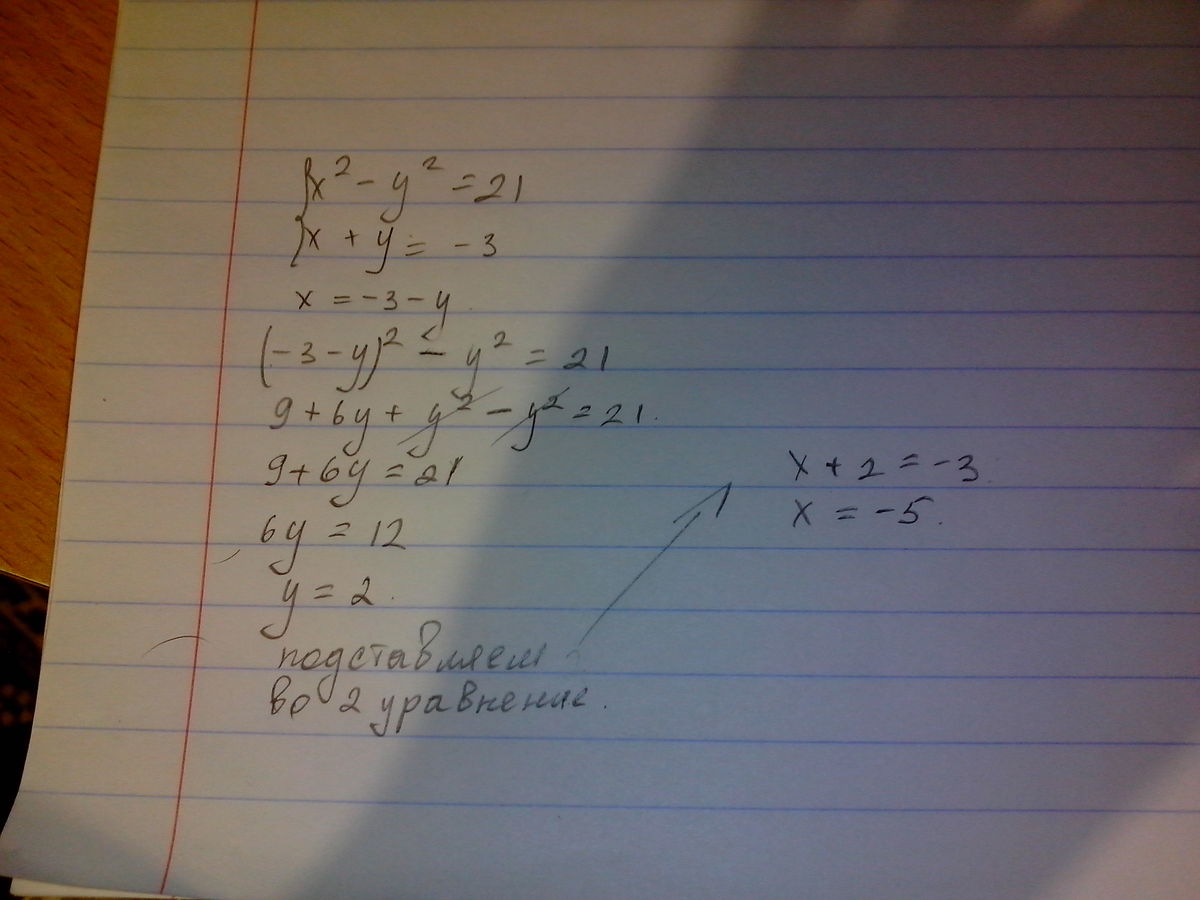 x² - y² = 21
x + y = -3
x = -3 - y
(-3 - y)² - y² = 21
9 + 6y + y² - y² = 21.
9 + 6y = 21
6y = 12
y = 2.
подставляем
во 2 уравнение.
x + 2 = -3
x = -5.